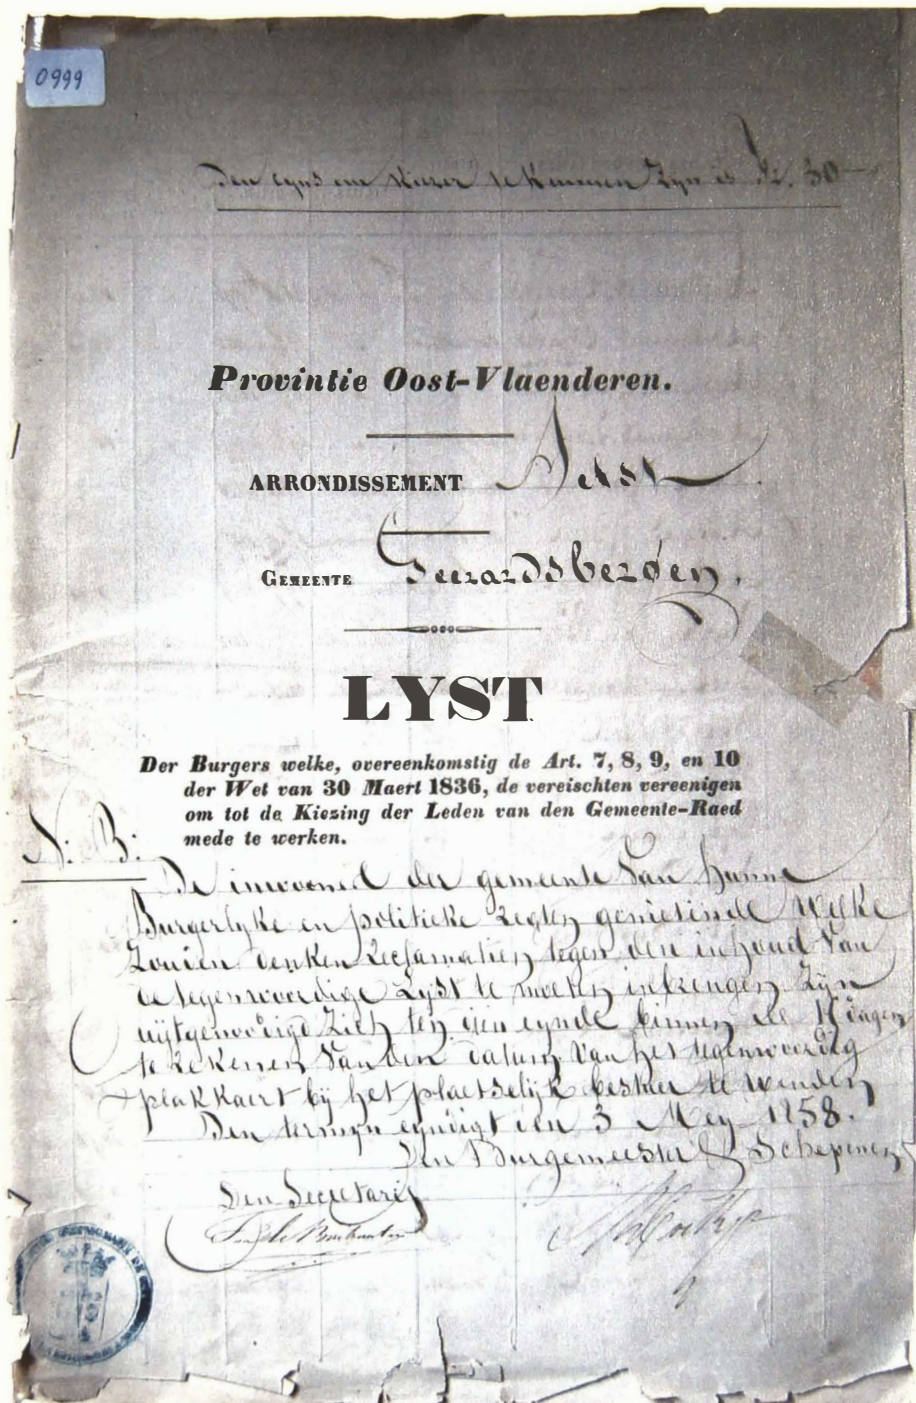 0999
Den cyns om kiezer te kunnen zyn is fr. 30
Provintie Oost-Vlaenderen.
ARRONDISSEMENT Aelst
GEMEENTE Geerardsbergen.
LYST
Der Burgers welke, overeenkomstig de Art. 7, 8, 9, en 10
der Wet van 30 Maert 1836, de vereischten vereenigen
om tot de Kiezing der Leden van den Gemeente-Raed
mede te werken.
N: B:
De inwooned der gemeente van hunne
Burgerlyke en politieke regten genietende welke
zouden denken reclamatien tegen den inhoud van
de tegenwoordige Lyst te moeten inbrengen zyn
uijtgenodigd zich ten dien eynde binnen de dagen
te rekenen van den datum van het tegenwoordig
plakkaert bij het plaetselijk bestuer te wenden
Den termyn eyndigt den 3 Mey 1858.
Den Burgemeester & Schepenen
Den Secretaris